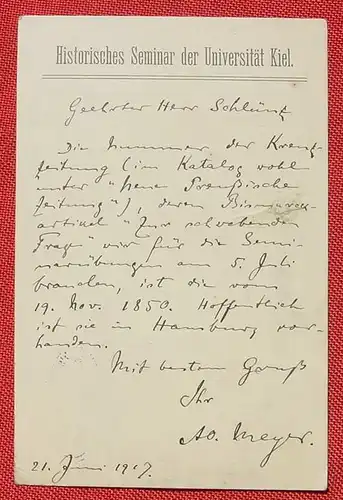 Historisches Seminar der Universität Kiel.
Geehrter Herr Schlünz
Die Nummer der Kreuz-
zeitung (im Katalog wohl
unter "Neue Preußische
Zeitung"), deren Bismarck-
artikel "Zur schwebenden
Frage" wir für die Semi-
narübungen am 5. Juli
brauchen, ist die vom
19. Nov. 1850. Hoffentlich
ist sie in Hamburg vor-
handen.
Mit bestem Gruß
Ihr
A.O. Meyer.
21. Juni 1917.